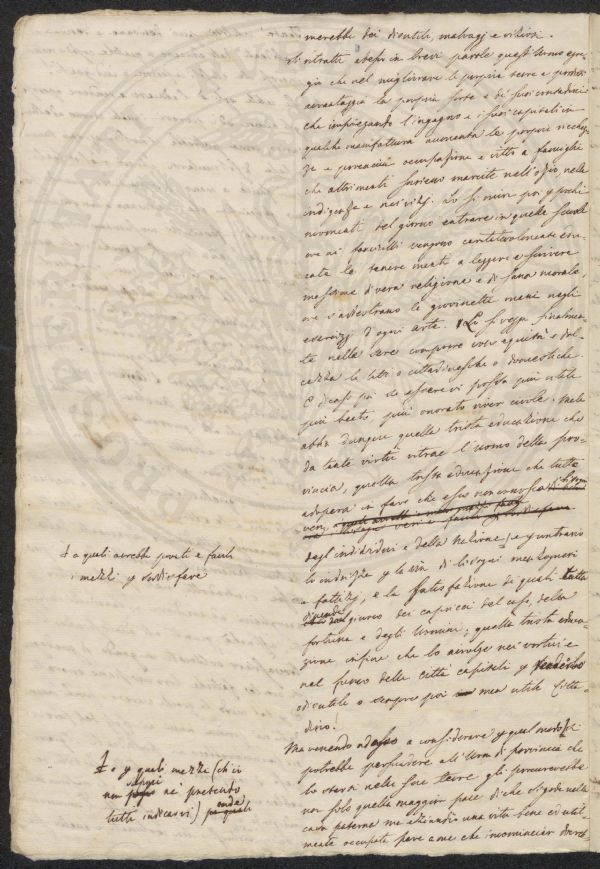 merebbe dei disutili, malvagi e viziosi.
Si ritratti adesso in brevi parole quest'uomo egre-
gio che nel migliorare le proprie terre e
avvantaggia la propria sorte e di suoi contadini
che impiegando l'ingegno e i suoi capitali in
qualche manifattura aumenta le proprie ricchez-
ze e procaccia occupazione e vitto a famiglie
che altrimenti sariano marcite nell'ozio nella
indigenza e nei vizj. Lo si miri poi p pochi
momenti del giorno entrare in quelle scuole
ove ai fanciulli vengono caritatevolmente edu-
cate le tenere menti a leggere e scrivere
massime di vera religione e di sana morale,
ove s'addestrano le giovinette mani negli
esercizj d'ogni arte. Lo si vegga finalmen-
te nella sera comporre con equità e dol-
cezza le liti o cittadinesche o domestiche.
E dicasi poi se esservi possa più utile
più beato, più onorato viver civile. Male
abbia dunque quella trista educazione che
da tante virtù ritrae l'uomo della pro-
vincia, quella trista educazione che tutto
adopera a fare che esso non conosca i bisogni
veri
degl'individui e della Nazione, e p contrario
lo indirizza p la via di bisogni menzogneri
e fattizj, e la satisfazione di quali tutta
dipende
giuoco dei capricci del caso, della
fortuna e degli uomini; quella trista educa-
zione infine che lo avvolge nei vortici e
nel fumo delle città capitali p renderlo
disutile o sempre poi men utile Citta-
dino!
Ma venendo adesso a considerare p qual modo si
potrebbe persuadere all'Uomo di provincia che
lo starsi nelle sue terre gli procurerebbe
non solo quella maggior pace di che si gode nella
casa paterna ma eziandio una vita bene ed util-
mente occupata pare a me che incominciar dovreb
+ a quali avrebbe pronti e facili
i mezzi p soddisfare
+ o p quali mezzi (ch'io
sempre
non ne pretendo
onde
tutti indicarvi) p quali